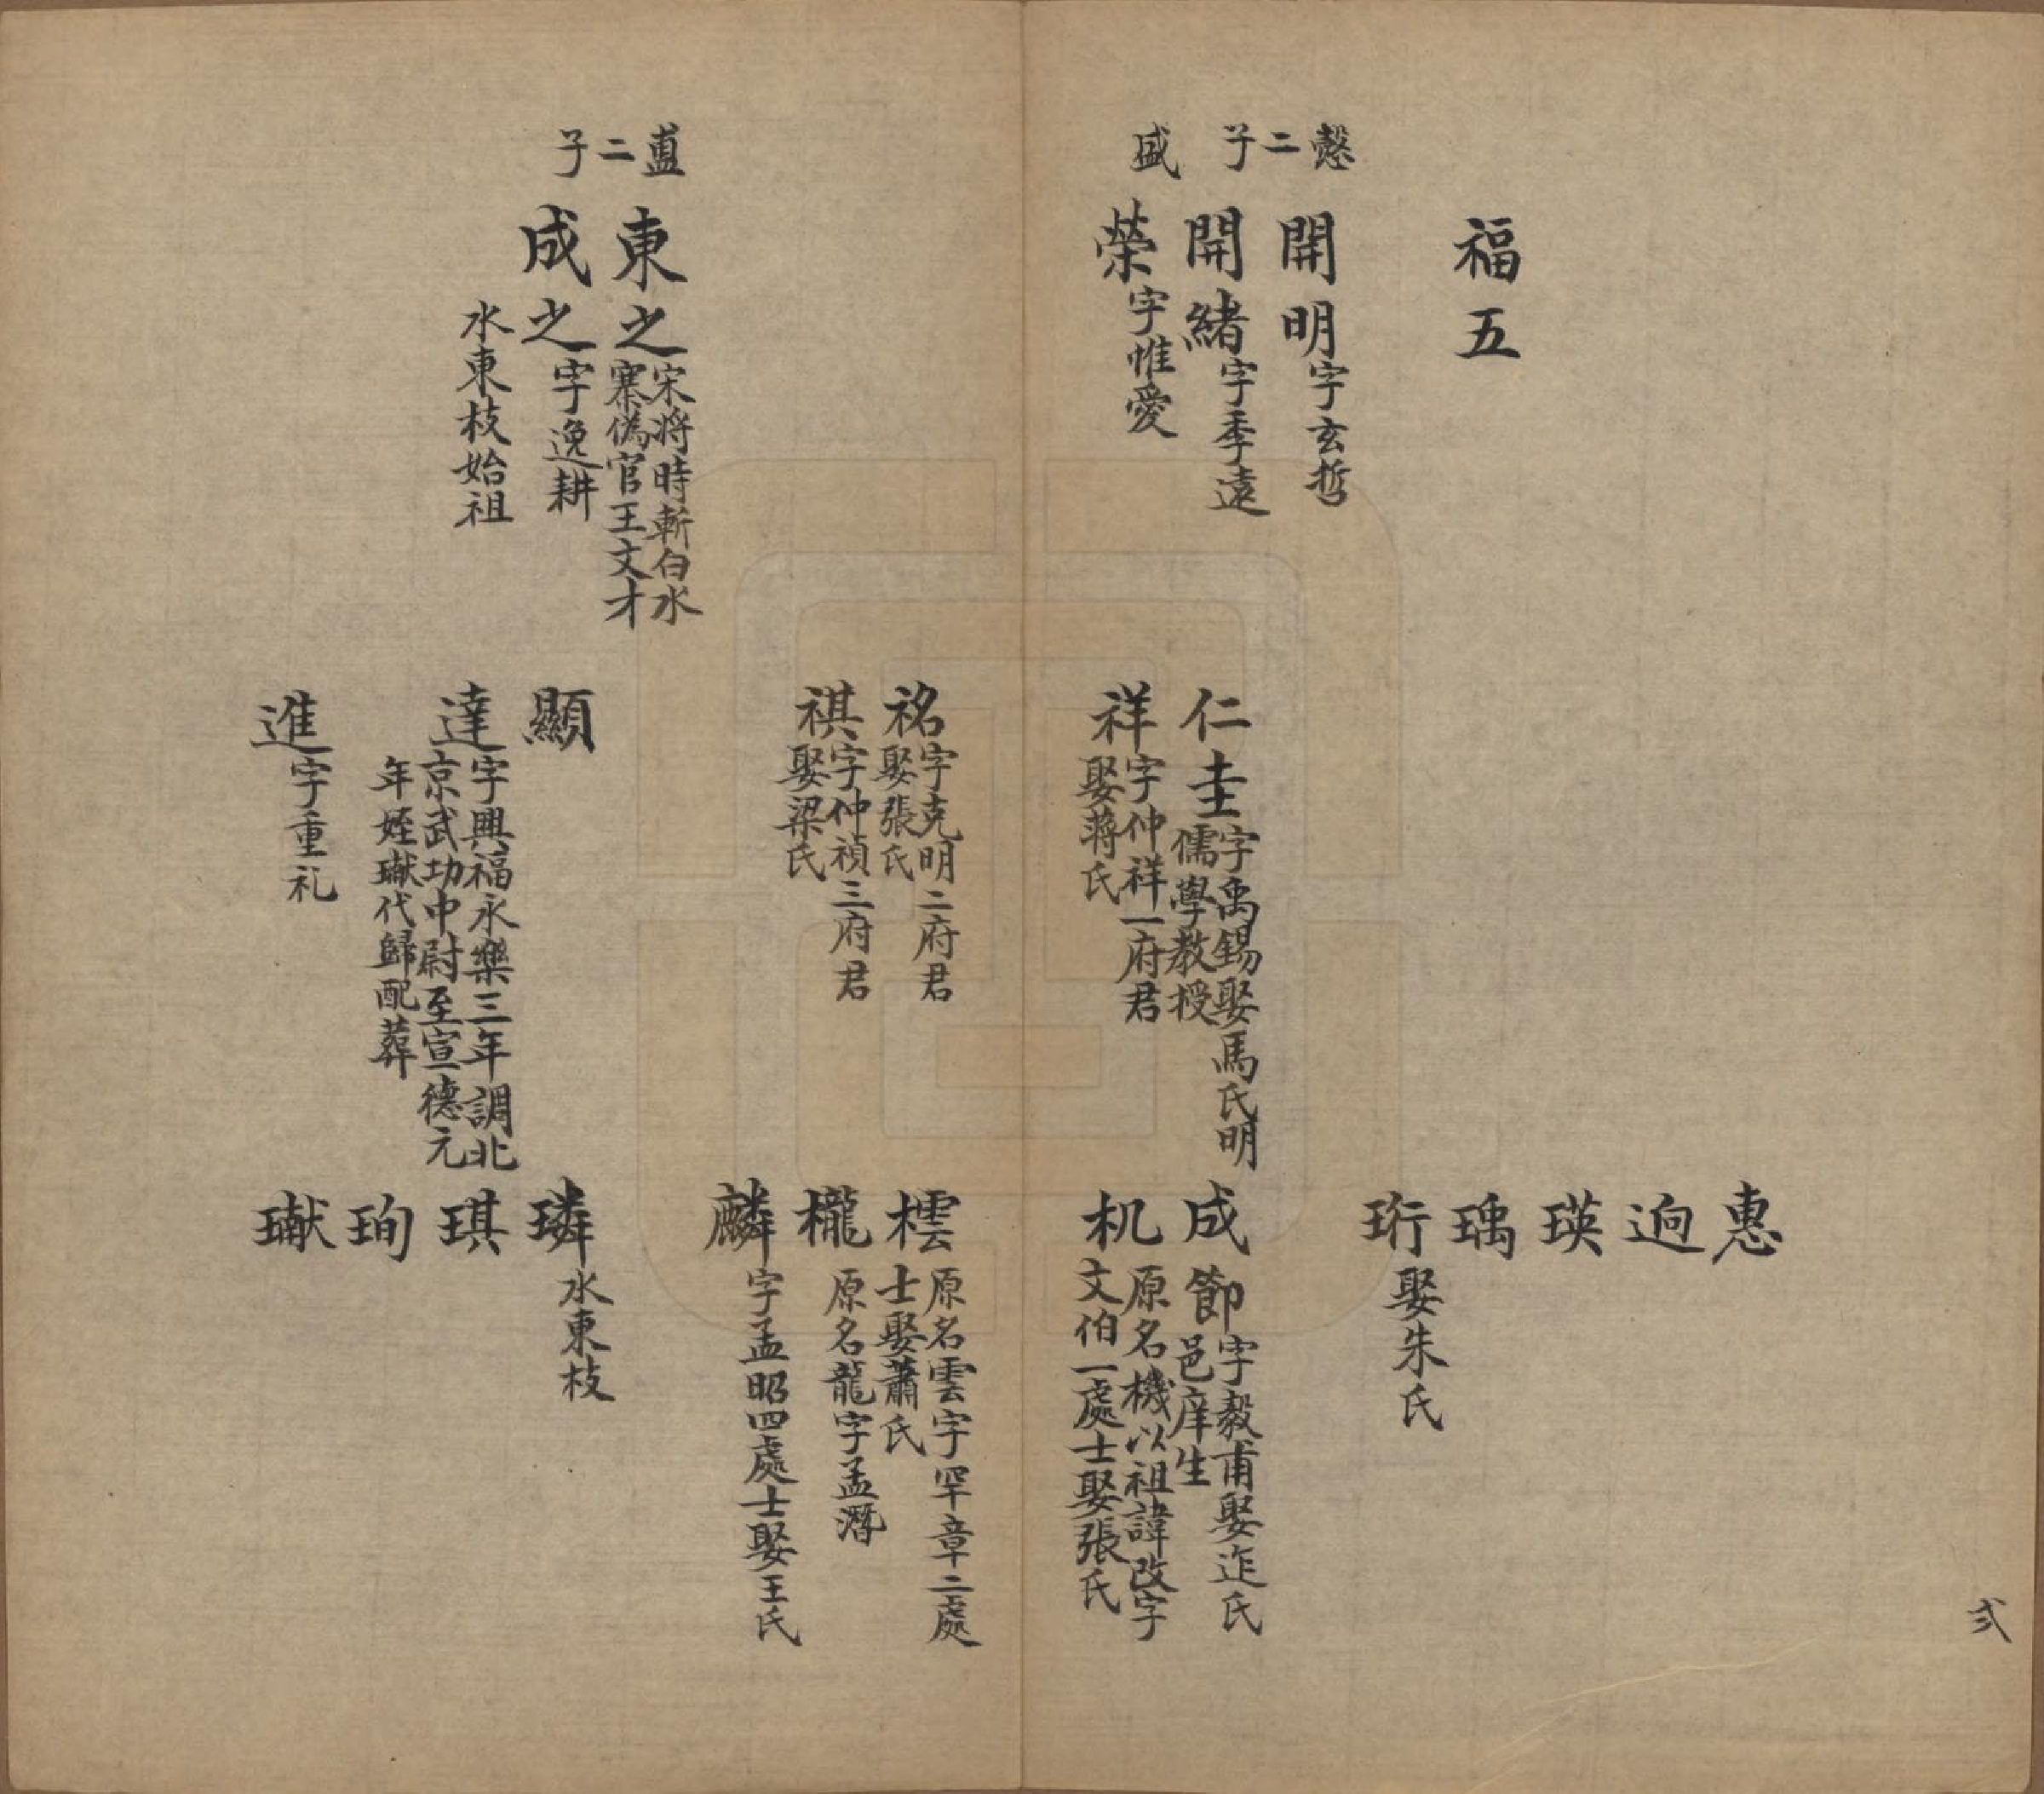 福五
慤二子
開明字玄哲
開緒字季遠
盛
榮字惟愛
仁圭字禹錫娶馬氏明
儒學教授
祥字仲祥一府君
娶蔣氏
惠
逈
瑛
瑀
珩娶朱氏
成節字毅甫娶迮氏
邑庠生
机原名機以祖諱改字
文伯一處士娶張氏
直二子
東之宋將時斬白水
寨偽官王文才
成之字逸耕
水東枝始祖
祐字克明二府君
娶張氏
祺字仲禎三府君
娶梁氏
顯
達字興福永樂三年調北
京武功中尉至宣德元
年姪瓛代歸配葬
進字重礼
橒原名雲字罕章二處
士娶蕭氏
櫳原名龍字孟潛
麟字孟昭四處士娶王氏
璘水東枝
琪
珣
瓛
弍